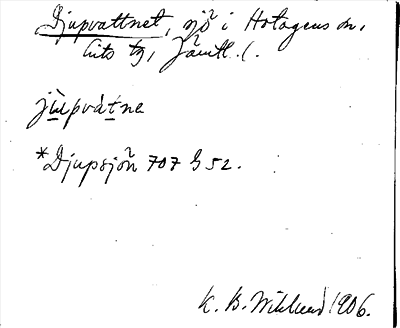 Djupvattnet, sjö i Hotagens sn,
Lits tg, Jämtl.
jùpvàtne
*Djupsjön 707 G 52.
K. B. Wiklund 1906.